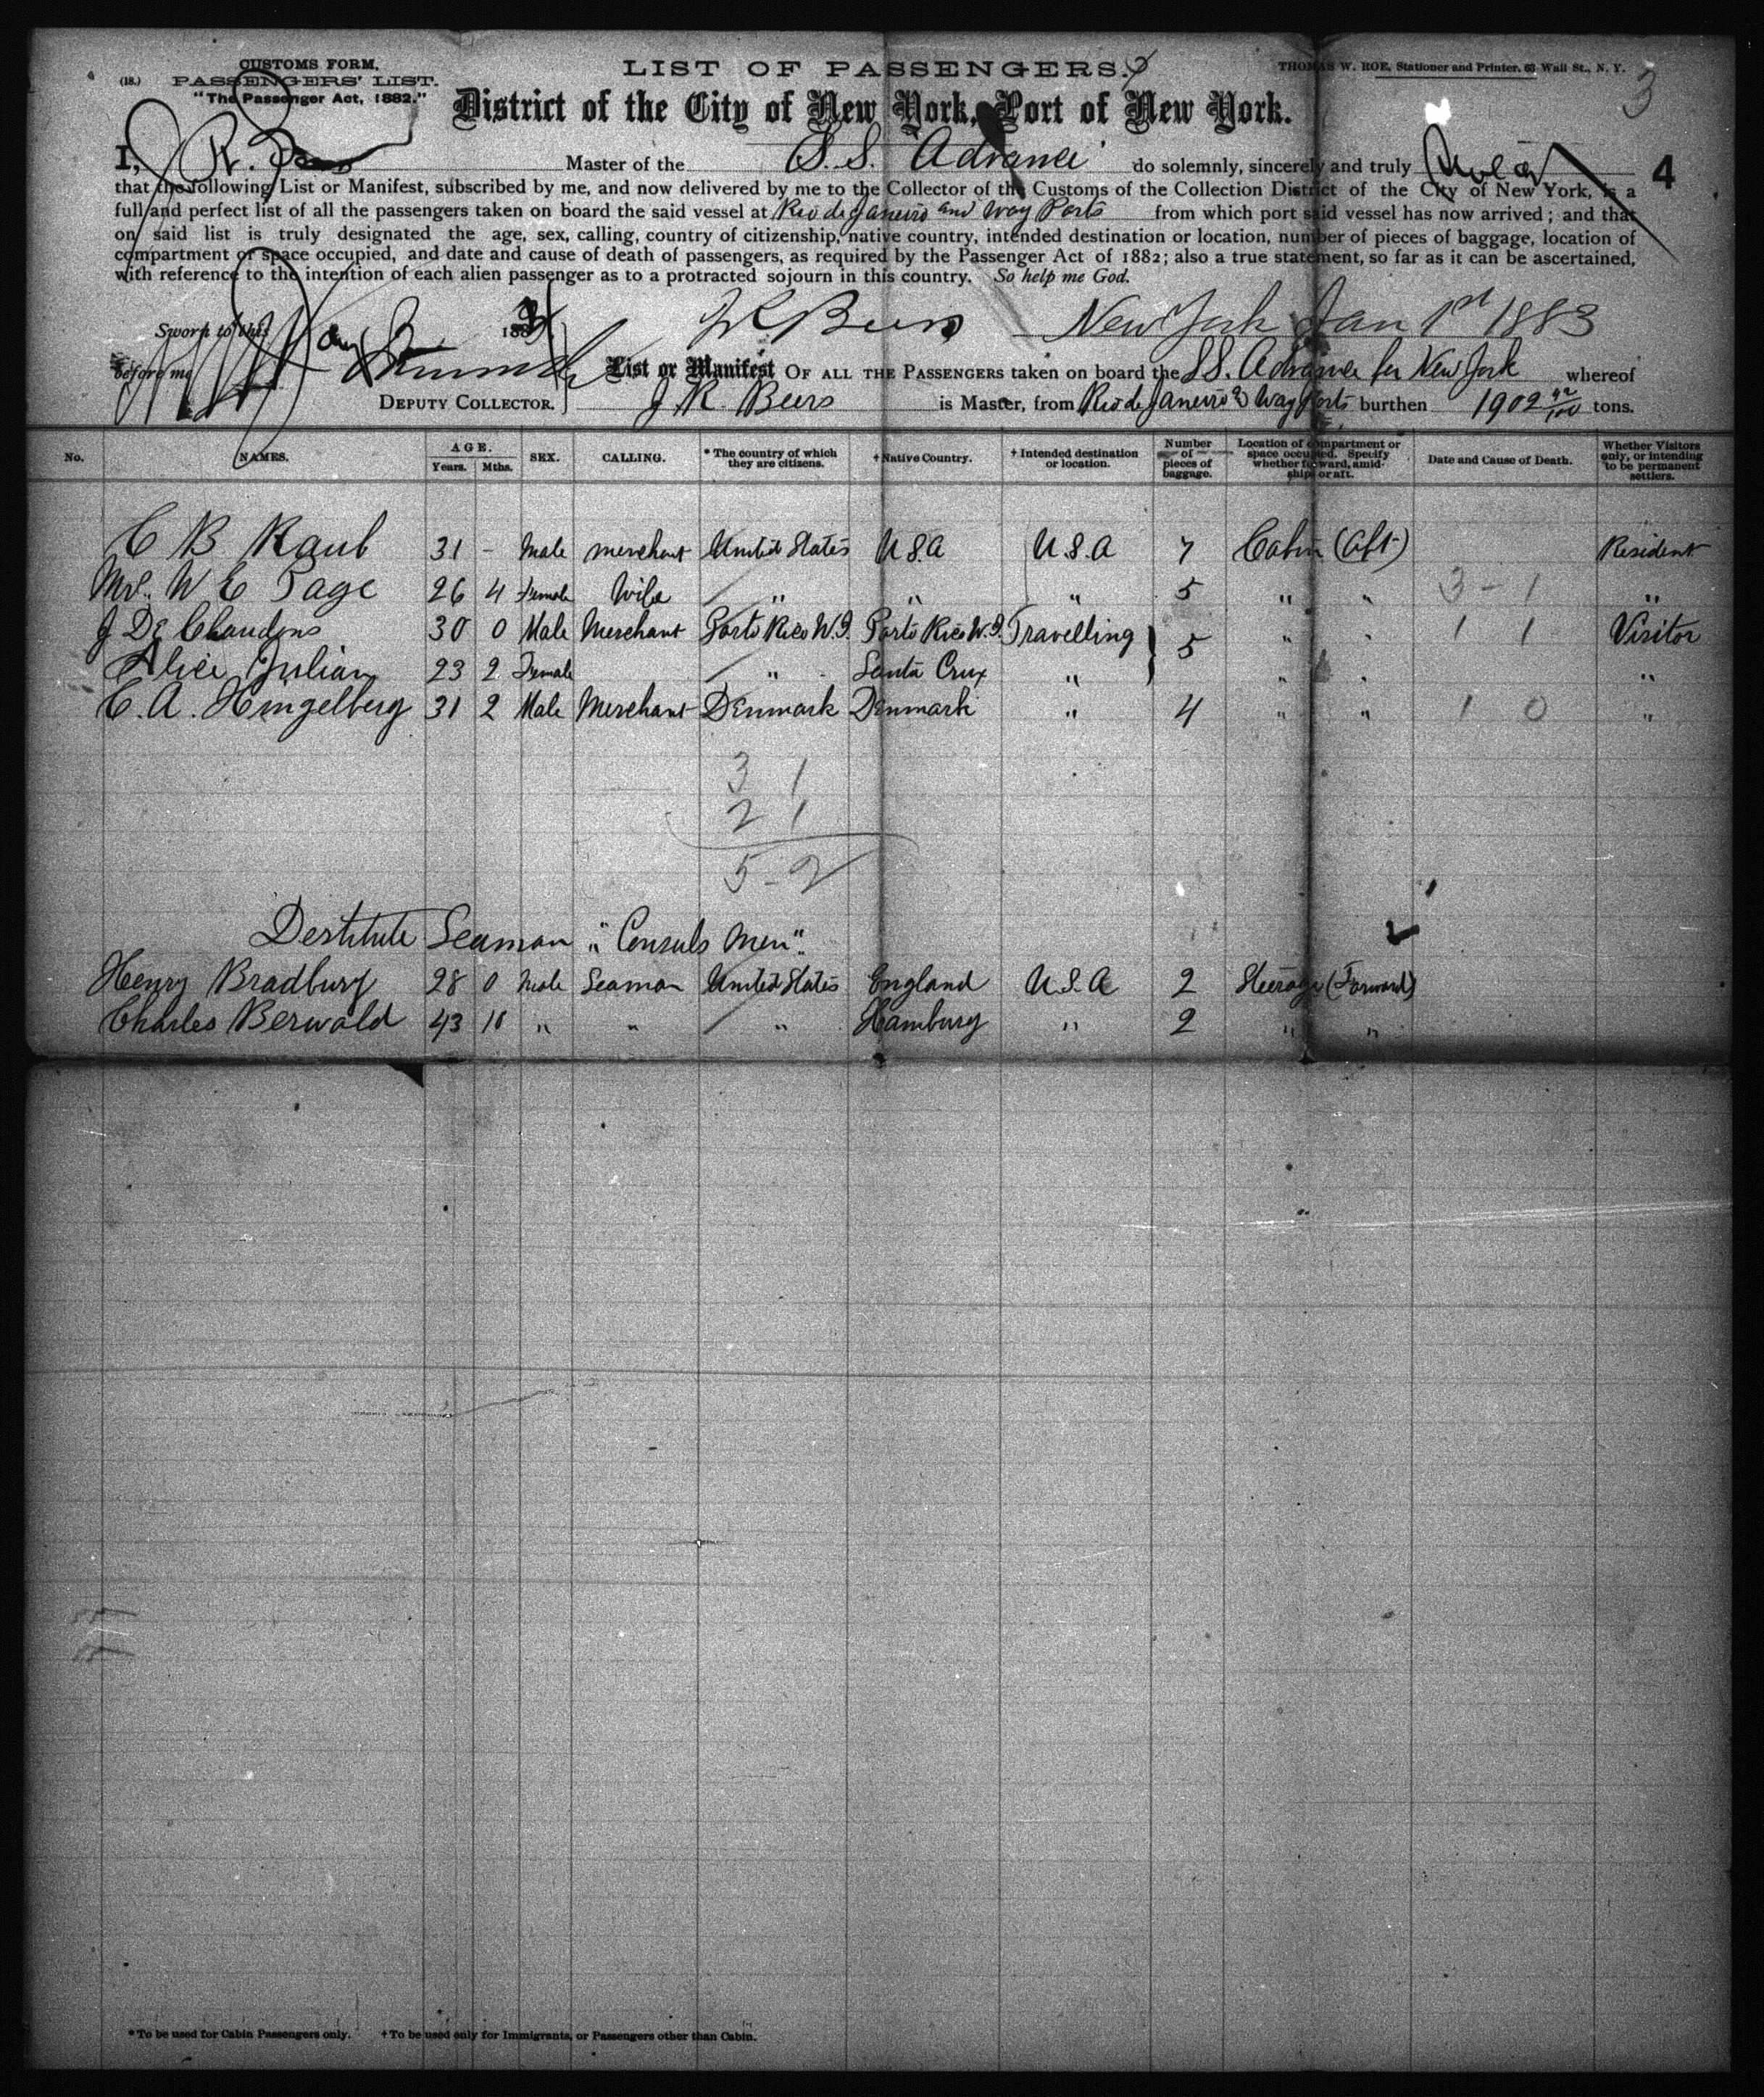 CUSTOMS FORM.
(18.) PASSENGERS' LIST.
"The Passenger Act, 1882."
LIST OF PASSENGERS.
THOMAS W. ROE, Stationer and Printer, 63 Wall St., N. Y.
3
District of the City of New York, Port of New York.
4
I, Master of the S.S. Advance do solemnly, sincerely and truly
that the following List or Manifest, subscribed by me, and now delivered by me to the Collector of the Customs of the Collection District of the City of New York, is a
full and perfect list of all the passengers taken on board the said vessel at Rio de Janeiro and Way Ports from which port said vessel has now arrived; and that
on said list is truly designated the age, sex, calling, country of citizenship, native country, intended destination or location, number of pieces of baggage, location of
compartment or space occupied, and date and cause of death of passengers, as required by the Passenger Act of 1882; also a true statement, so far as it can be ascertained,
with reference to the intention of each alien passenger as to a protracted sojourn in this country. So help me God.
Sworn to this 1883 J R Beers New York Jan 1st 1883
before me List or Manifest OF ALL THE PASSENGERS taken on board the SS. Advance for New York whereof
DEPUTY COLLECTOR. J R Beers is Master, from Rio de Janeiro & Way Ports burthen 1902 42/100 tons.
No. NAMES. AGE. Years. Mths. SEX. CALLING. * The country of which they are citizens. † Native Country. † Intended destination or location. Number of pieces of baggage. Location of compartment or space occupied. Specify whether forward, amidships or aft. Date and Cause of Death. Whether Visitors only, or intending to be permanent settlers.
C B Raub 31 - Male merchant United States U.S.A U.S.A 7 Cabin (Aft) Resident
Mrs. W E Page 26 4 Female Wife " " " 5 " " 3 - 1 "
J De Chaudens 30 0 Male Merchant Porto Rico W.I. Porto Rico W.I. Travelling 5 " " 1 1 Visitor
Alice Julian 23 2 Female " Santa Crux " " " "
C. A. Hingelberg 31 2 Male Merchant Denmark Denmark " 4 " " 1 0 "
3 1
2 1
5 - 2
Destitute Seaman "Consuls Men"
Henry Bradbury 28 0 Male Seaman United States England U.S.A 2 Steerage (Forward)
Charles Berwald 43 10 " " " Hamburg " 2 " "
* To be used for Cabin Passengers only. † To be used only for Immigrants, or Passengers other than Cabin.